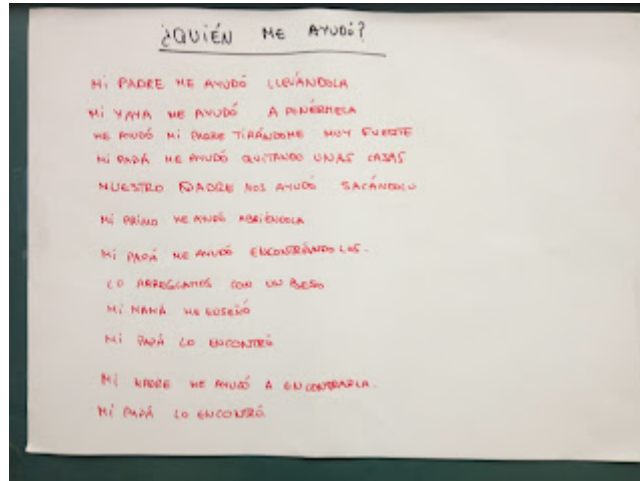 ¿QUIÉN ME AYUDÓ?
Mi PADRE ME AYUDÓ LLEVÁNDOLA
Mi YAYA ME AYUDÓ A PONÉRMELA
ME AYUDÓ Mi PADRE TIRÁNDOME MUY FUERTE
Mi PAPÁ ME AYUDÓ QUITANDO UNAS CAJAS
NUESTRO PADRE NOS AYUDÓ SACÁNDOLO
Mi PRIMO ME AYUDÓ ABRIÉNDOLA
Mi PAPÁ ME AYUDÓ ENCONTRÁNDOLOS.
LO ARREGLAMOS CON UN BESO
Mi MAMÁ ME ENSEÑÓ
Mi PAPÁ LO ENCONTRÓ
Mi MADRE ME AYUDÓ A ENCONTRARLA.
Mi PAPÁ LO ENCONTRÓ